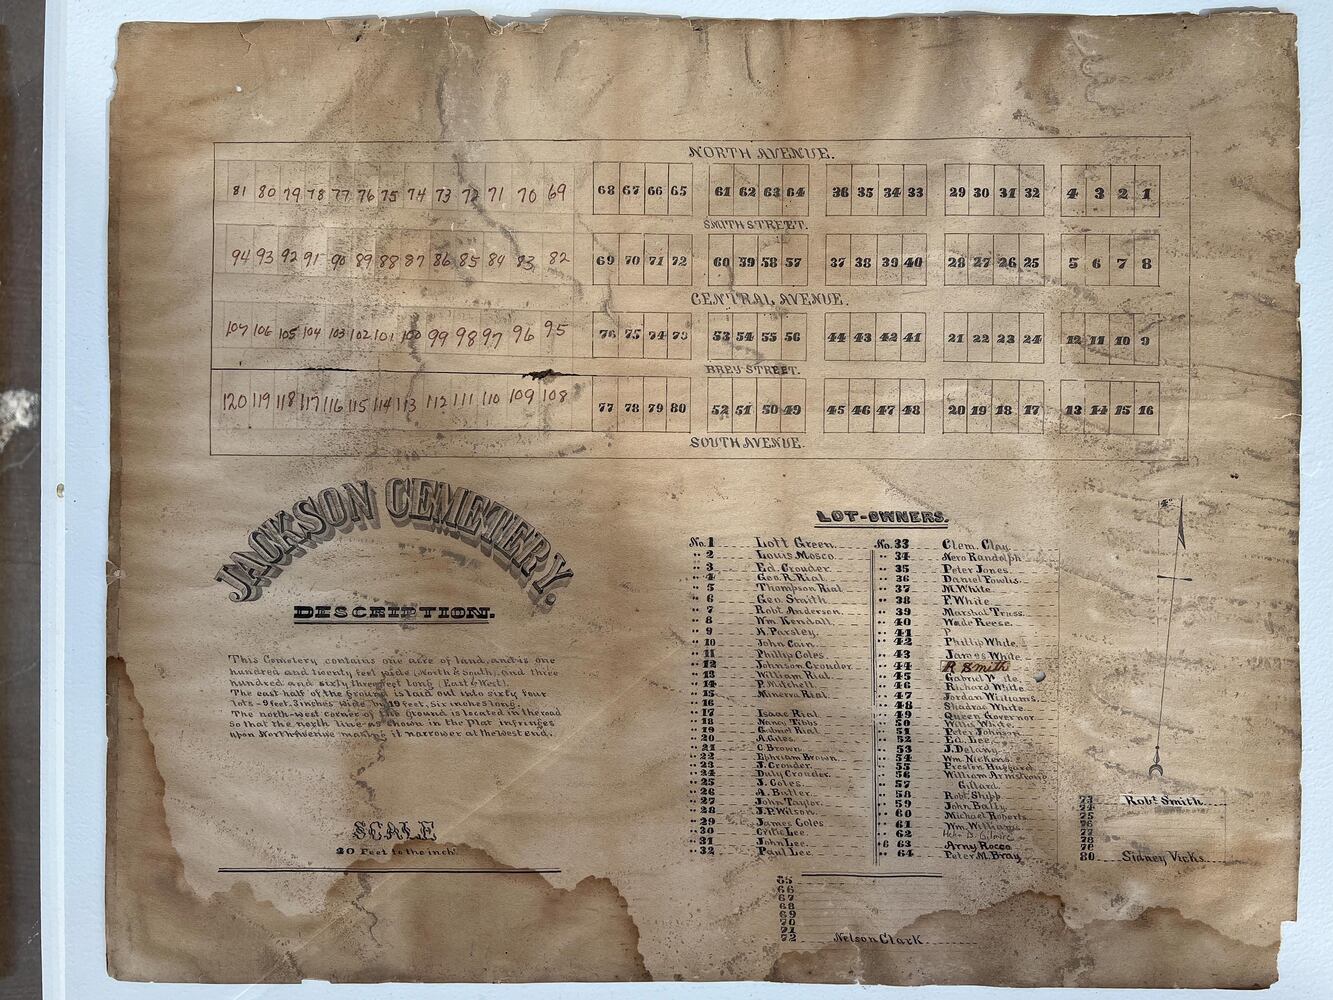 NORTH AVENUE.
81 80 79 78 77 76 75 74 73 72 71 70 69 68 67 66 65 61 62 63 64 36 35 34 33 29 30 31 32 4 3 2 1
SMITH STREET.
94 93 92 91 90 89 88 87 86 85 84 83 82 69 70 71 72 60 59 58 57 37 38 39 40 28 27 26 25 5 6 7 8
CENTRAL AVENUE.
107 106 105 104 103 102 101 100 99 98 97 96 95 76 75 74 73 53 54 55 56 44 43 42 41 21 22 23 24 12 11 10 9
BREU STREET.
120 119 118 117 116 115 114 113 112 111 110 109 108 77 78 79 80 52 51 50 49 45 46 47 48 20 19 18 17 13 14 15 16
SOUTH AVENUE.
JACKSON CEMETERY.
DESCRIPTION.
This Cemetery contains one acre of land, and is one
hundred and twenty feet wide (North & South), and three
hundred and sixty three feet long (East & West).
The east half of the ground is laid out into sixty four
lots - 9 feet, 3 inches wide by 19 feet, six inches long.
The north-west corner of the ground is located in the road
so that the north line as shown in the Plat infringes
upon North Avenue making it narrower at the west end.
SCALE
20 Feet to the inch.
LOT-OWNERS.
No. 1 Lott Green.
" 2 Louis Mosco.
" 3 Ed. Crouder.
" 4 Geo. R. Rial.
" 5 Thompson Rial
" 6 Geo. Smith
" 7 Robt. Anderson.
" 8 Wm. Kendall.
" 9 Parsley.
" 10 John Cain.
" 11 Phillip Coles.
" 12 Johnson Crouder.
" 13 William Rial.
" 14 P. Mitchell.
" 15 Minerva Rial.
" 16
" 17 Isaac Rial.
" 18 Nancy Tibbs
" 19 Gabriel Rial.
" 20 A. Giles.
" 21 C. Brown.
" 22 Ephriam Brown.
" 23 J. Crouder.
" 24 Duly Crouder.
" 25 J. Coles.
" 26 A. Butler.
" 27 John Taylor.
" 28 J. P. Wilson.
" 29 James Coles
" 30 Lee.
" 31 John Lee.
" 32 Paul Lee.
No. 33 Clem. Clay.
" 34 Nero Randolph
" 35 Peter Jones.
" 36 Daniel
" 37 M. White.
" 38 F. White.
" 39 Marshal Truss.
" 40 Wade Reese.
" 41 P
" 42 Phillip White.
" 43 James White
" 44 R Smith
" 45 Gabriel
" 46 Richard White.
" 47 Jordan Williams.
" 48 White.
" 49 Queen Governor
" 50 Willis White.
" 51 Peter Johnson
" 52 Ed. Lee.
" 53 J. Delany.
" 54 Wm. Nickens.
" 55 Preston
" 56 William Armstrong
" 57 Gillard.
" 58 Robt. Shipp.
" 59 John Batty.
" 60 Michael Roberts.
" 61 Wm. Williams
" 62
" 63 Arny Rocco
" 64 Peter M. Bray
65
66
67
68
69
70
71
72 Nelson Clark
73 Robt. Smith
74
75
76
77
78
79
80 Sidney Vicks